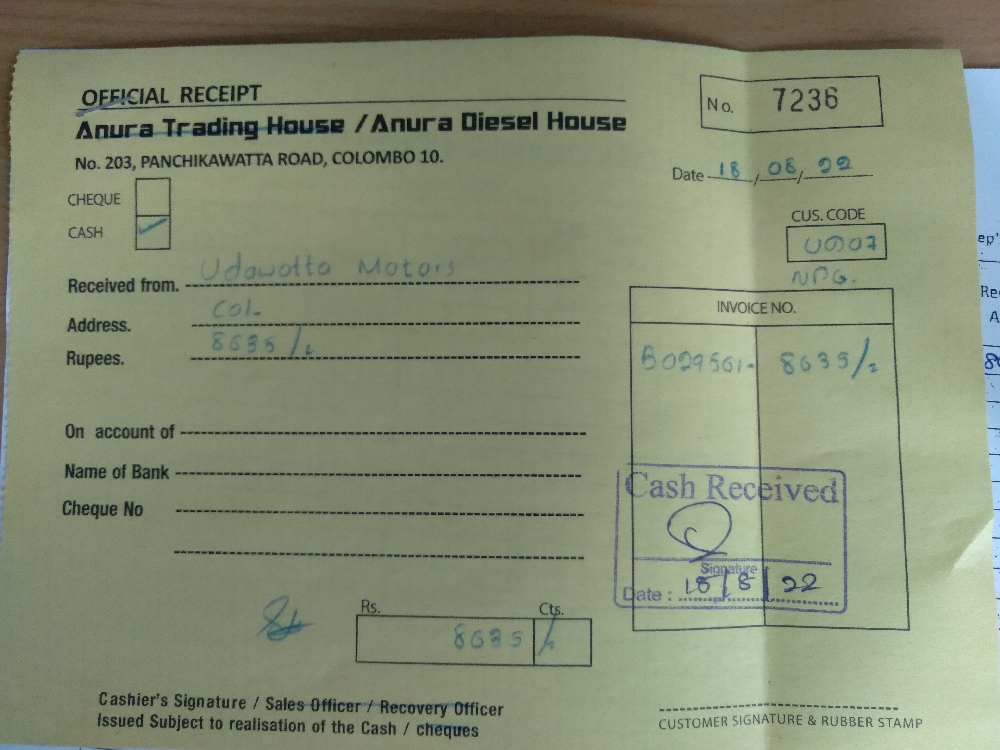 OFFICIAL RECEIPT
Anura Trading House / Anura Diesel House
No. 203, PANCHIKAWATTA ROAD, COLOMBO 10.
No. 7236
Date 18 / 08 / 22
CHEQUE
CASH ✓
CUS. CODE
U007
NPG.
Received from. Udawatta Motors
Address. Col.
Rupees. 8635/
INVOICE NO.
B029561- 8635/
On account of
Name of Bank
Cheque No
Cash Received
Signature
Date : 18/8/22
Rs. Cts.
8635 /
Cashier's Signature / Sales Officer / Recovery Officer
Issued Subject to realisation of the Cash / cheques
CUSTOMER SIGNATURE & RUBBER STAMP